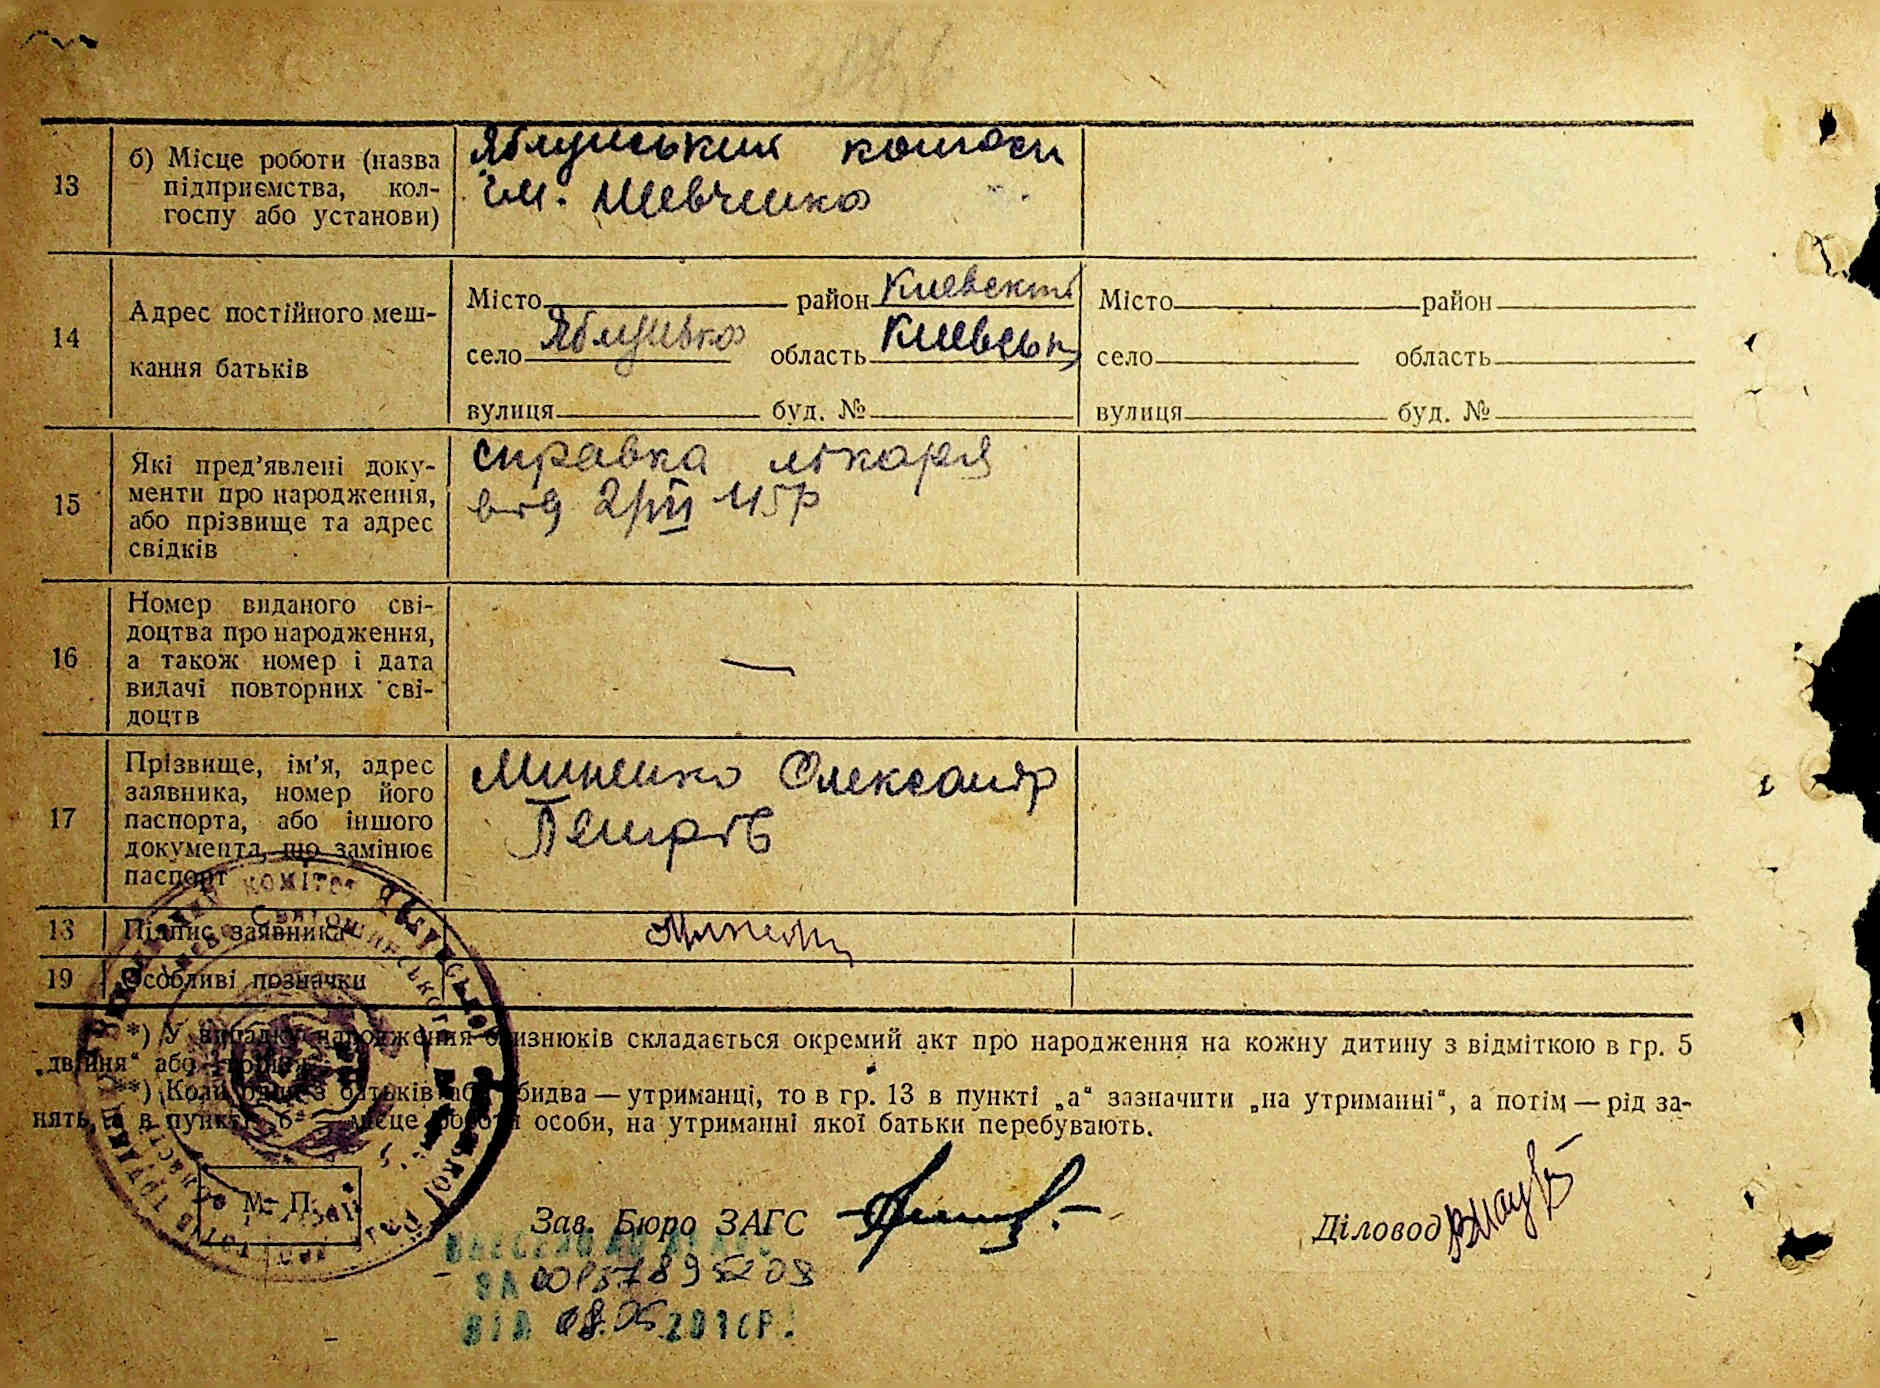 13
б) Місце роботи (назва
підприємства, кол-
госпу або установи)
Яблунський
ім. Шевченко
14
Адрес постійного меш-
кання батьків
Місто район Киевский
село Яблунька область Киевськ
вулиця буд. №
Місто район
село область
вулиця буд. №
15
Які пред’явлені доку-
менти про народження,
або прізвище та адрес
свідків
справка лікаря
від 2/III 45р
16
Номер виданого сві-
доцтва про народження,
а також номер і дата
видачі повторних сві-
доцтв
—
17
Прізвище, ім’я, адрес
заявника, номер його
паспорта, або іншого
документа, що замінює
паспорт
Олександр
Петрів
13
Підпис заявника
19
Особливі позначки
*) У випадку народження близнюків складається окремий акт про народження на кожну дитину з відміткою в гр. 5
„двійня“ або
**) Коли один з батьків або обидва — утриманці, то в гр. 13 в пункті „а“ зазначити „на утриманні“, а потім — рід за-
нять, а в пункті „б“ — місце роботи особи, на утриманні якої батьки перебувають.
КОМІТЕТ
Святошинського
М. П.
Зав. Бюро ЗАГС
Діловод
ВНЕСЕНО ДО
ЗА 00157895208
ВІД 08.05.2010Р.